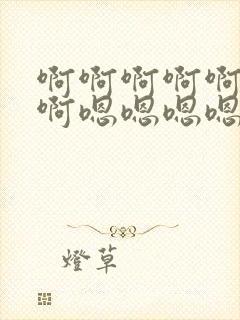 啊啊啊啊啊
啊嗯嗯嗯嗯
燈草